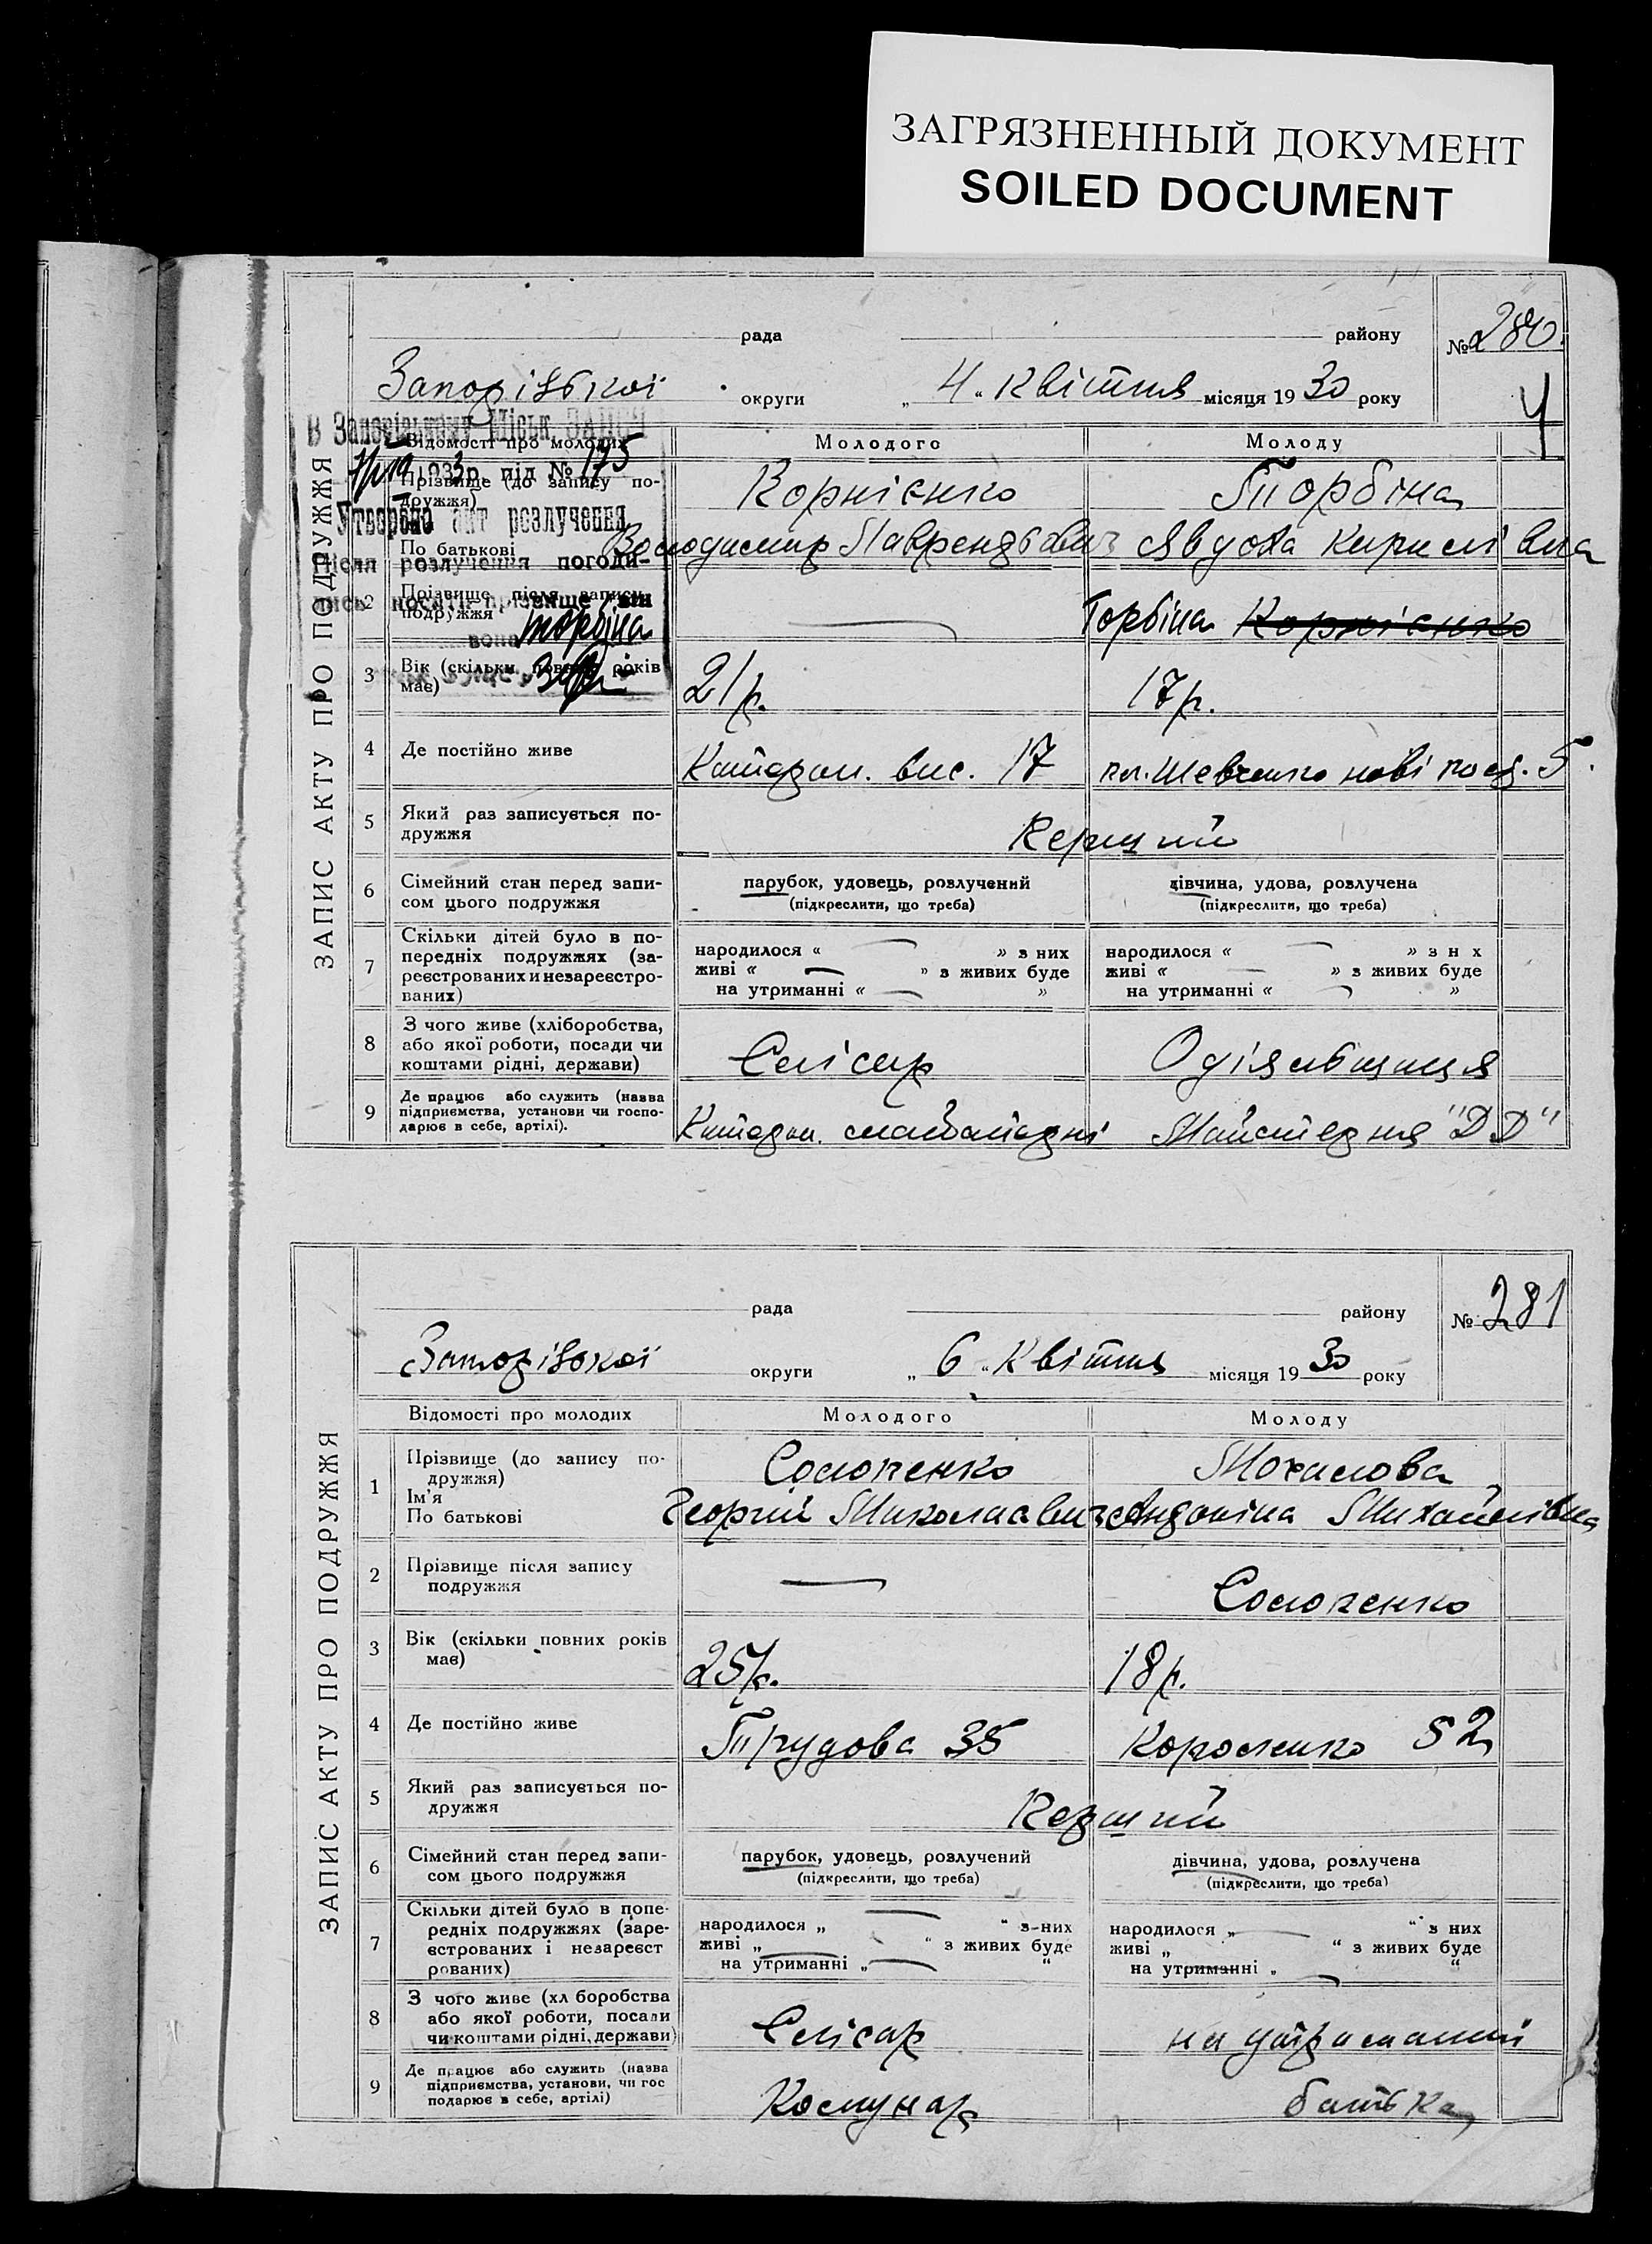 ЗАГРЯЗНЕННЫЙ ДОКУМЕНТ
SOILED DOCUMENT
ЗАПИС АКТУ ПРО ПОДРУЖЖЯ
рада району № 280.
Запорізької округи „4“ Квітня місяця 1930 року
В Запорізькому Міськ. ЗАГСі
193 р. під № 175
Утворено акт розлучення
Після розлучення погоди-
лись носити прізвище він
вона Торбіна
Відомості про молодих Молодого Молоду
Прізвище (до запису по-
дружжя) Корнієнко Торбіна
По батькові Володимир Лаврендьєвич Явдоха Кирилівна
2 Прізвище після запису
подружжя — Торбіна Корнієнко
3 Вік (скільки повних років
має) 21 р. 17 р.
4 Де постійно живе Катеран. вис. 17 пл. Шевченко нові 5
5 Який раз записується по-
дружжя Перший
6 Сімейний стан перед запи-
сом цього подружжя парубок, удовець, розлучений дівчина, удова, розлучена
(підкреслити, що треба) (підкреслити, що треба)
7 Скільки дітей було в по-
передніх подружжях (за-
реєстрованих и незареєстро-
ваних) народилося « — » з них народилося « — » з н х
живі « — » з живих буде живі « — » з живих буде
на утриманні « — » на утриманні « — »
8 З чого живе (хліборобства,
або якої роботи, посади чи
коштами рідні, держави) Слісар Одіяльщиця
9 Де працює або служить (назва
підприємства, установи чи госпо-
дарює в себе, артілі). Майстерня "ДД"
ЗАПИС АКТУ ПРО ПОДРУЖЖЯ
рада району № 281
Запорізької округи „6“ Квітня місяця 1930 року
Відомості про молодих Молодого Молоду
1 Прізвище (до запису по-
дружжя) Солопенко Мохалова
Ім'я
По батькові Георгій Миколаєвич Андоніна Михайлівна
2 Прізвище після запису
подружжя — Солопенко
3 Вік (скільки повних років
має) 25 р. 18 р.
4 Де постійно живе Трудова 35 Короленко 52
5 Який раз записується по-
дружжя Перший
6 Сімейний стан перед запи-
сом цього подружжя парубок, удовець, розлучений дівчина, удова, розлучена
(підкреслити, що треба) (підкреслити, що треба)
7 Скільки дітей було в попе-
редніх подружжях (заре-
єстрованих і незареєст
рованих) народилося „ — “ з них народилося „ — “ з них
живі „ — “ з живих буде живі „ “ з живих буде
на утриманні „ — “ на утриманні „ — “
8 З чого живе (хл боробства
або якої роботи, посади
чи коштами рідні, держави) Слісар на утриманні
9 Де працює або служить (назва
підприємства, установи, чи гос
подарює в себе, артілі) Комунар батька